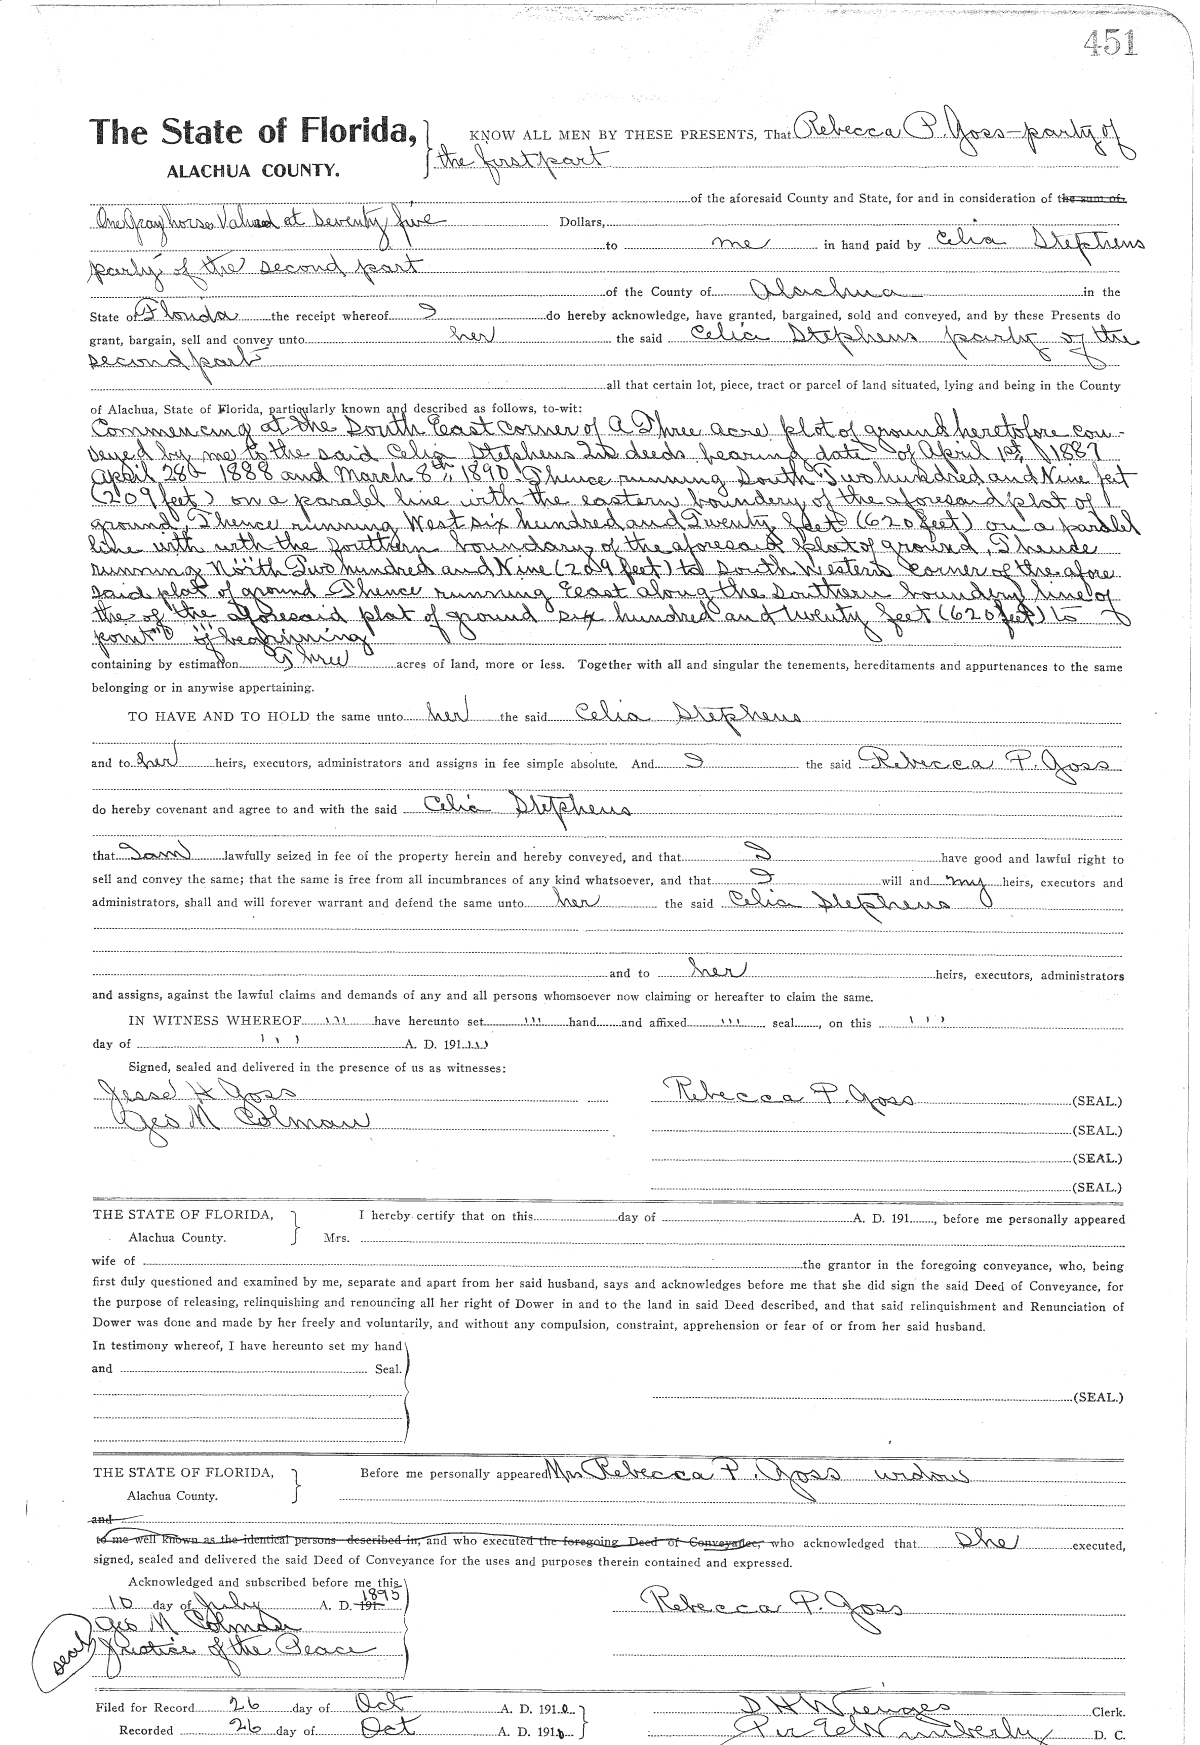 451
The State of Florida, KNOW ALL MEN BY THESE PRESENTS, That Rebecca P. Goss - party of
ALACHUA COUNTY. the first part
of the aforesaid County and State, for and in consideration of the sum of
One Gray horse Valued at Seventy five Dollars,
to me in hand paid by Celia Stephens
party of the second part
of the County of Alachua in the
State of Florida the receipt whereof I do hereby acknowledge, have granted, bargained, sold and conveyed, and by these Presents do
grant, bargain, sell and convey unto her the said Celia Stephens party of the
second part
all that certain lot, piece, tract or parcel of land situated, lying and being in the County
of Alachua, State of Florida, particularly known and described as follows, to-wit:
Commencing at the South East corner of A Three acre plot of ground heretofore con-
veyed by me to the said Celia Stephens deeds bearing date of April 1st 1887
April 28th 1888 and March 8th, 1890. Thence running South Two hundred and Nine feet
(209 feet) on a paralel line with the eastern boundery of the aforesaid plat of
ground Thence running West six hundred and Twenty feet (620 feet) on a paralel
line with with the Southern boundary of the aforesaid plat of ground, Thence
running North Two hundred and Nine (209 feet) to South Western corner of the afore
said plat of ground Thence running East along the Southern boundery line of
the of the aforesaid plat of ground six hundred and twenty feet (620 feet) to
point of beginning
containing by estimation Three acres of land, more or less. Together with all and singular the tenements, hereditaments and appurtenances to the same
belonging or in anywise appertaining.
TO HAVE AND TO HOLD the same unto her the said Celia Stephens
and to her heirs, executors, administrators and assigns in fee simple absolute. And I the said Rebecca P. Goss
do hereby covenant and agree to and with the said Celia Stephens
that I am lawfully seized in fee of the property herein and hereby conveyed, and that I have good and lawful right to
sell and convey the same; that the same is free from all incumbrances of any kind whatsoever, and that I will and my heirs, executors and
administrators, shall and will forever warrant and defend the same unto her the said Celia Stephens
and to her heirs, executors, administrators
and assigns, against the lawful claims and demands of any and all persons whomsoever now claiming or hereafter to claim the same.
IN WITNESS WHEREOF ''' have hereunto set ''' hand and affixed ''' seal, on this ' ' '
day of ' ' ' A. D. 191 '''
Signed, sealed and delivered in the presence of us as witnesses:
Jesse H Goss Rebecca P. Goss (SEAL.)
Geo M Colman (SEAL.)
(SEAL.)
(SEAL.)
THE STATE OF FLORIDA, I hereby certify that on this day of A. D. 191, before me personally appeared
Alachua County. Mrs.
wife of the grantor in the foregoing conveyance, who, being
first duly questioned and examined by me, separate and apart from her said husband, says and acknowledges before me that she did sign the said Deed of Conveyance, for
the purpose of releasing, relinquishing and renouncing all her right of Dower in and to the land in said Deed described, and that said relinquishment and Renunciation of
Dower was done and made by her freely and voluntarily, and without any compulsion, constraint, apprehension or fear of or from her said husband.
In testimony whereof, I have hereunto set my hand
and Seal.
(SEAL.)
THE STATE OF FLORIDA, Before me personally appeared Mrs Rebecca P. Goss widow
Alachua County.
and
to me well known as the identical persons described in, and who executed the foregoing Deed of Conveyance, who acknowledged that She executed,
signed, sealed and delivered the said Deed of Conveyance for the uses and purposes therein contained and expressed.
Acknowledged and subscribed before me this
10 day of July A. D. 191 1895 Rebecca P. Goss
Geo M Colman
seal Justice of the Peace
Filed for Record 26 day of Oct A. D. 1910 D H Wienges Clerk.
Recorded 26 day of Oct A. D. 1910 Per E W Wimberly D. C.